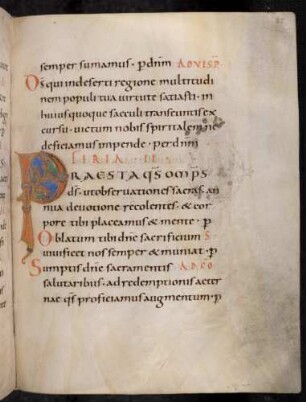 semper sumamus · p dnm AD VESP
Ds qui in deserti regione multitudi
nem populi tua uirtute satiasti · in
huius quoque saeculi transeuntis ex
cursu · uictum nobis spiritalem ne
deficiamus inpende · per dnm
FERIA II
PRAESTA qs omps
ds · ut obseruationes sacras an
nua deuotione recolentes · & cor
pore tibi placeamus & mente · p
Oblatum tibi dne sacrificium S
uiuificet nos semper & muniat · p
Sumptis dne sacramentis AD CO
salutaribus · ad redemptionis aeter
nae qs proficiamus augmentum · p